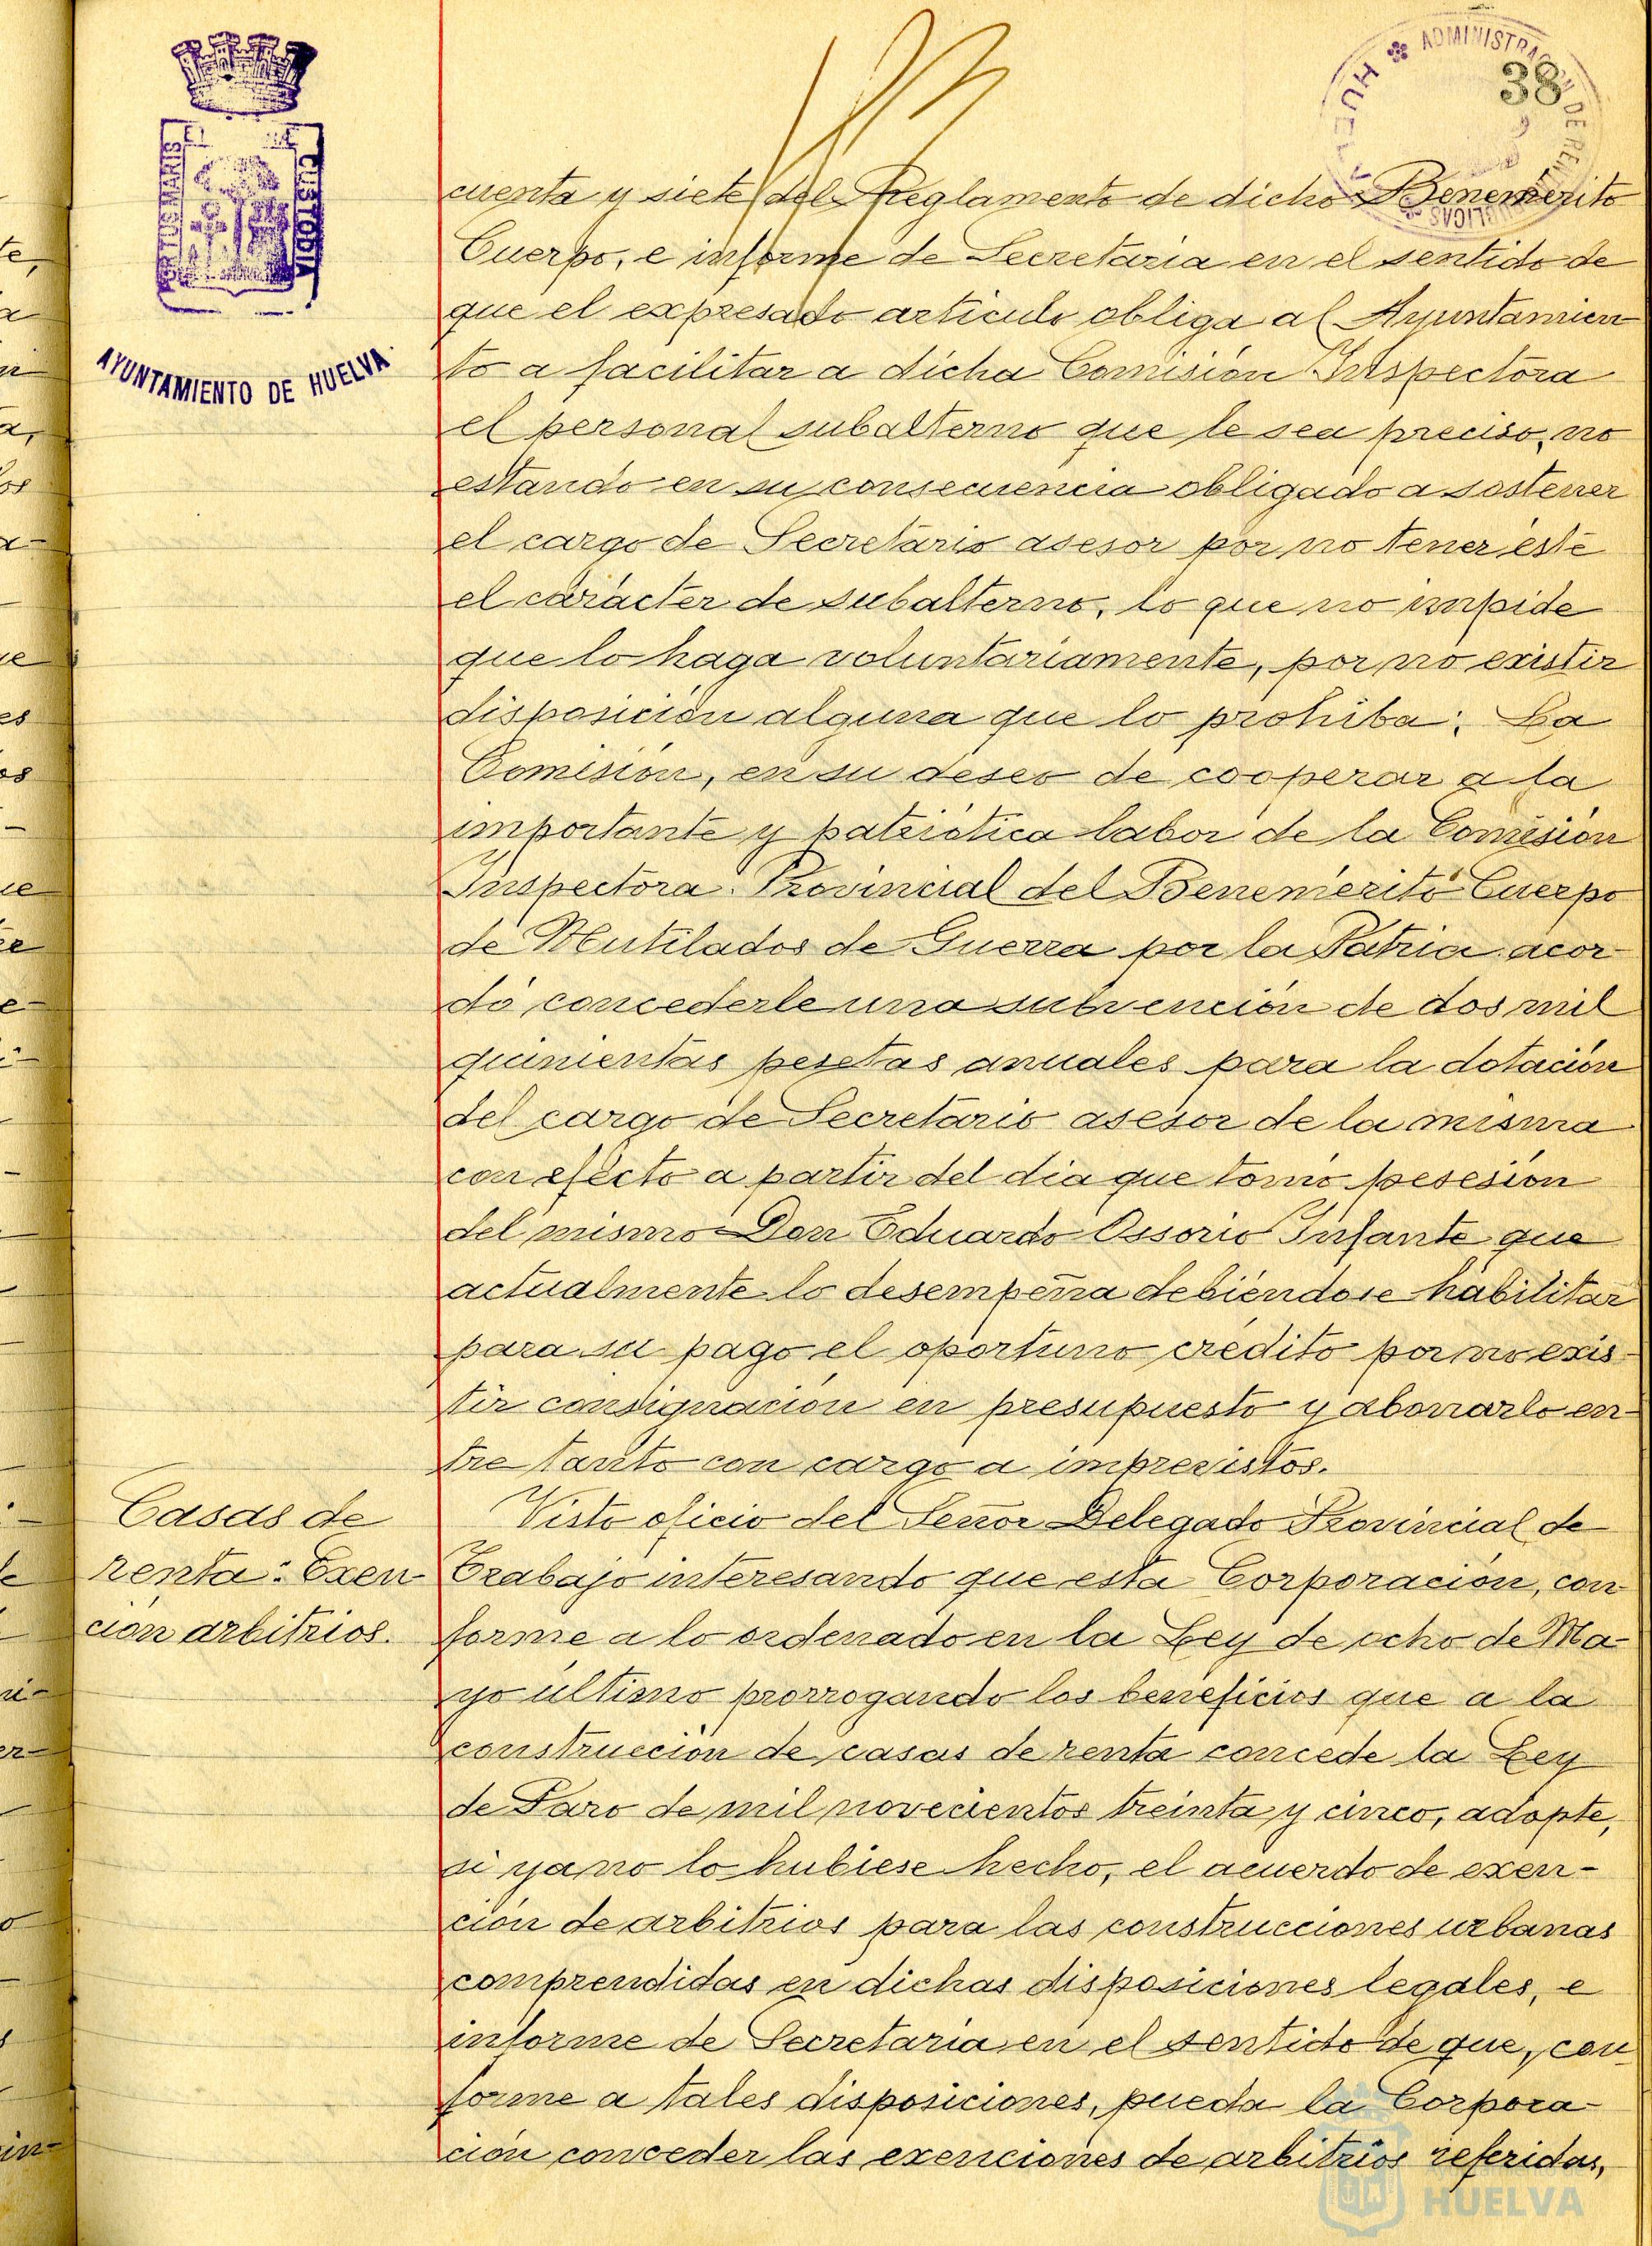 ADMINISTRACIÓN DE RENTAS
PÚBLICAS
HUELVA
38
PORTUS MARIS ET
CUSTODIA
AYUNTAMIENTO DE HUELVA
cuenta y siete del Reglamento de dicho Benemérito
Cuerpo, e informe de Secretaría en el sentido de
que el expresado artículo obliga al Ayuntamien
to a facilitar a dicha Comisión Inspectora
el personal subalterno que le sea preciso, no
estando en su consecuencia obligado a sostener
el cargo de Secretario asesor por no tener éste
el carácter de subalterno, lo que no impide
que lo haga voluntariamente, por no existir
disposición alguna que lo prohiba; La
Comisión, en su deseo de cooperar a la
importante y patriótica labor de la Comisión
Inspectora Provincial del Benemérito Cuerpo
de Mutilados de Guerra por la Patria acor-
dó concederle una subvención de dos mil
quinientas pesetas anuales para la dotación
del cargo de Secretario asesor de la misma
con efecto a partir del día que tomó posesión
del mismo Don Eduardo Ossorio Infante que
actualmente lo desempeña debiéndose habilitar
para su pago el oportuno crédito por no exis-
tir consignación en presupuesto y abonarlo en-
tre tanto con cargo a imprevistos.
Casas de
renta: Exen-
ción arbitrios.
Visto oficio del Señor Delegado Provincial de
Trabajo interesando que esta Corporación, con-
forme a lo ordenado en la Ley de ocho de Ma-
yo último prorrogando los beneficios que a la
construcción de casas de renta concede la Ley
de Paro de mil novecientos treinta y cinco, adopte,
si ya no lo hubiese hecho, el acuerdo de exen-
ción de arbitrios para las construcciones urbanas
comprendidas en dichas disposiciones legales, e
informe de Secretaría en el sentido de que, con-
forme a tales disposiciones, pueda la Corpora-
ción conceder las exenciones de arbitrios referidas,
HUELVA